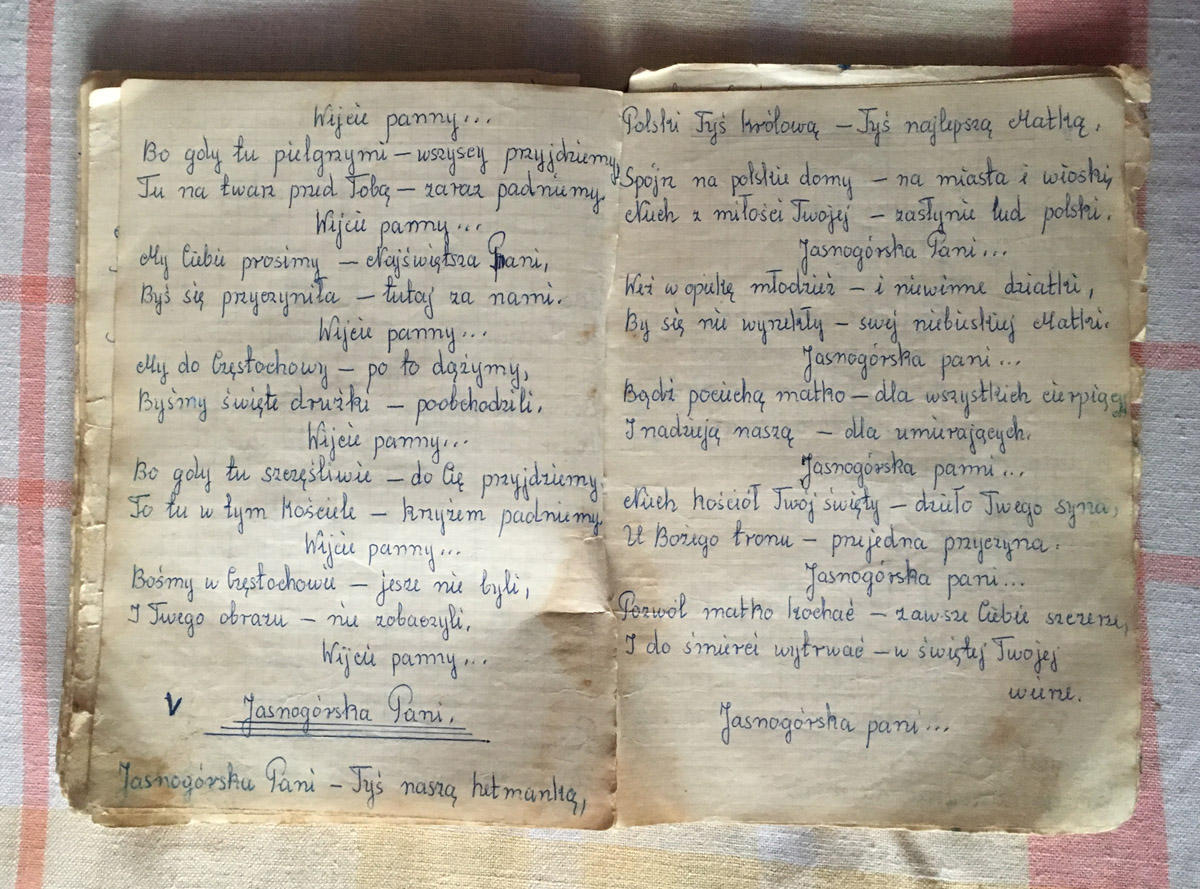 Wijcie panny...
Bo gdy tu pielgrzymi – wszyscy przyjdziemy,
Tu na twarz przed Tobą – zaraz padniemy.
Wijcie panny...
My Ciebie prosimy – Najświętsza Pani,
Byś się przyczyniła – tutaj za nami.
Wijcie panny...
My do Częstochowy – po to dążymy,
Byśmy święte dróżki – poobchodzili.
Wijcie panny...
Bo gdy tu szczęśliwie – do Cię przyjdziemy,
To tu w tym kościele – krzyżem padniemy.
Wijcie panny...
Bośmy w Częstochowie – jesze nie byli,
I Twego obrazu – nie zobaczyli.
Wijcie panny...
V Jasnogórska Pani.
Jasnogórska Pani – Tyś naszą hetmanką,
Polski Tyś królową – Tyś najlepszą Matką.
Spójrz na polskie domy – na miasta i wioski,
Niech z miłości Twojej – zasłynie lud polski.
Jasnogórska Pani...
Weź w opiekę młodzież – i niewinne dziatki,
By się nie wyrzekły – swej niebieskiej Matki.
Jasnogórska pani...
Bądź pociechą matko – dla wszystkich cierpiących
I nadzieją naszą – dla umierających.
Jasnogórska panni...
Niech kościół Twój święty – dzieło Twego syna,
U Bożego tronu – przejedna przyczyna.
Jasnogórska pani...
Pozwól matko kochać – zawsze Ciebie szczerze,
I do śmierci wytrwać – w świętej Twojej
wierze.
Jasnogórska pani...